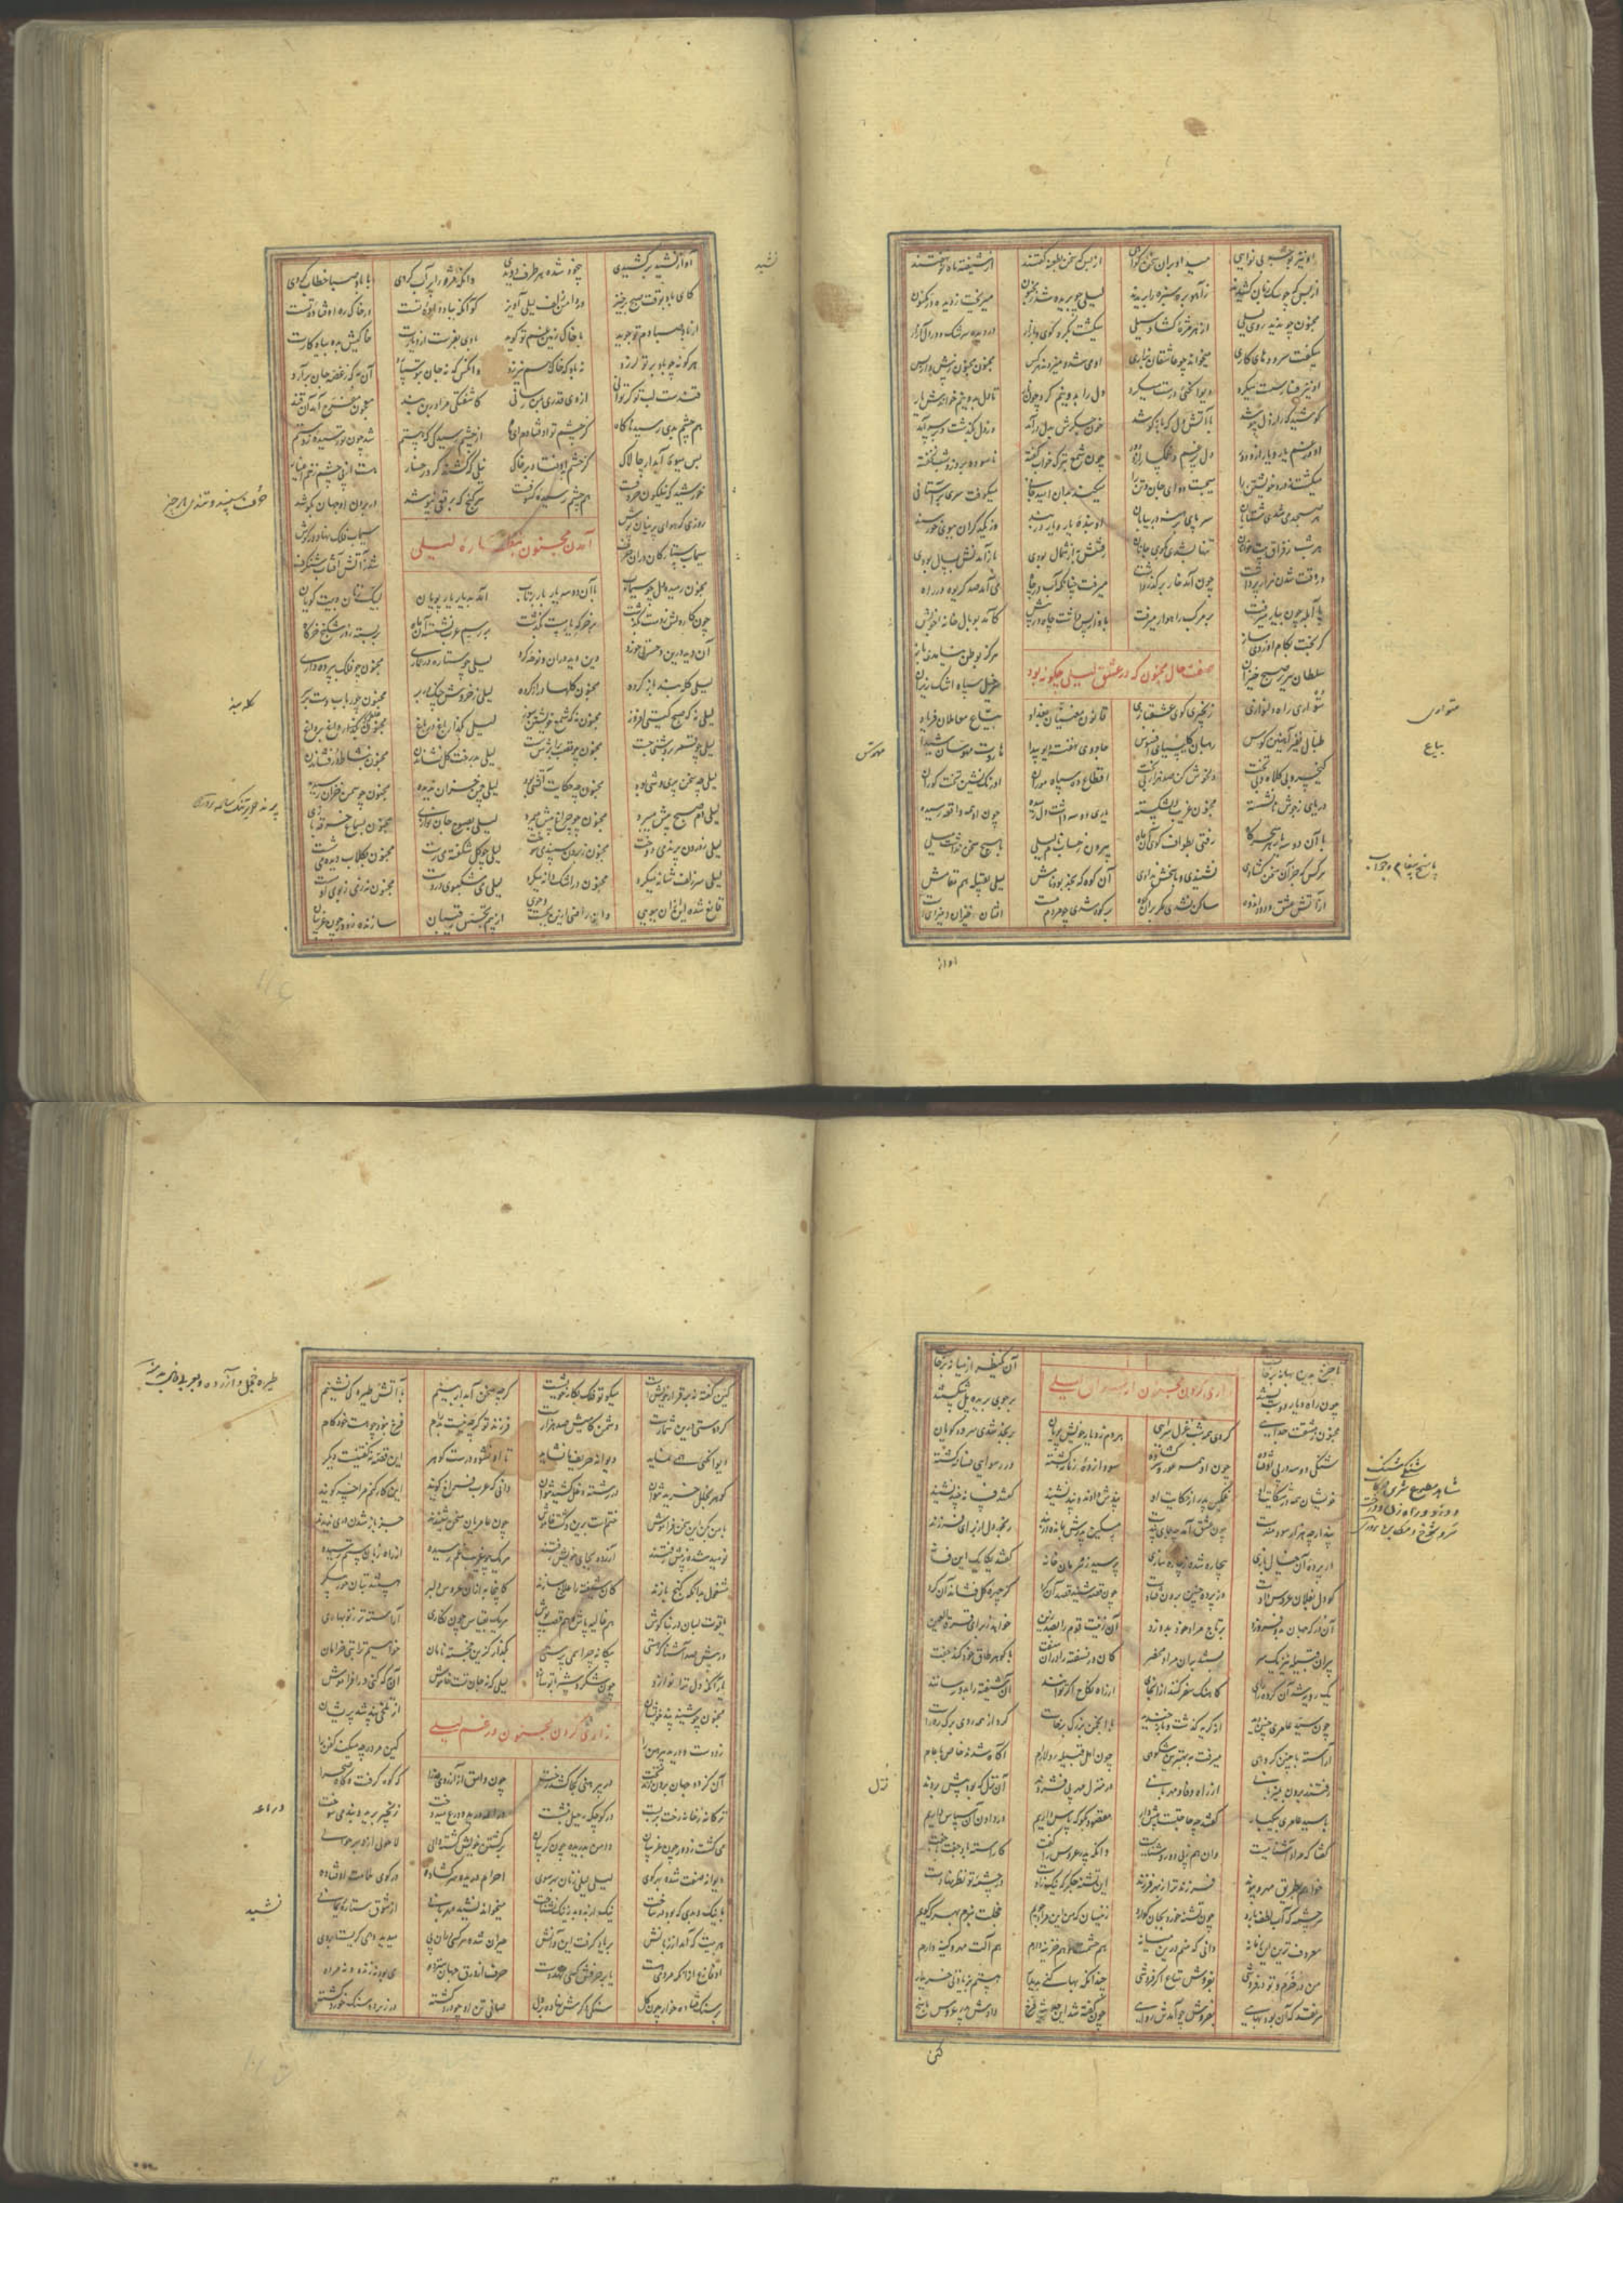 او نیز بوجهی نوایی میزد او بران سخن گواهی از بس که سخن بطعنه گفتند از شیفته ماه نو نهفتند
از بس که چو سک زبان کشیدند ز آهو بره سبزه را بریدند لیلی چو بریده شد ز مجنون میریخت ز دیده در مکنون
مجنون چو ندید روی لیلی از هر مژه کشاد سیلی میکشت بکرد کوی و بازار در دیده سرشک و در دل آزار
میکفت سرودهای کاری میخواند چو عاشقان بزاری او می شد و میزدند هر کس مجنون مجنون ز پیش و از پس
او نیز فسار سست میکرد دیوانکی درست میکرد دل را بدو نیم کرد چون نار تا دل بدو نیم خواندش یار
کوشید که راز دل بپوشد با آتش دل که باز کوشد خون جکرش بدل برآمد از دل بکذشت و بر سر آمد
او در غم یار و یار ازو دور دل پر غم و غمکسار ازو دور چون شمع بترک خواب کفته ناسوده بروز و شب نخفته
میکشت ز درد خویشتن را میجست دوای جان و تن را میکند بدان امید جانی میکوفت سری بر آستانی
هر صبحدمی شدی شتابان سر پای برهنه در بیابان او بنده یار و یار در بند از یکدکران ببوی خرسند
هر شب ز فراق بیت خوانان پنهان بشدی بکوی جانان رفتنش به از شمال بودی باز آمدنش بسال بودی
در وقت شدن هزار پر داشت چون آمد خار بر کذر داشت میرفت چنانکه آب در چاه می آمد صد کریوه در راه
پای آبله چون بیار میرفت بر مرکب راهوار میرفت باد از پس داشت چاه در پیش کامد بوبال خانه خویش
کر بخت بکام او زدی ساز هرکز بوطن نیامدی باز
صفت حال مجنون که در عشق لیلی چکونه بود
سلطان سریر صبح خیزان سرخیل سپاه اشک ریزان
متواری راه دلنوازی زنجیری کوی عشقبازی قانون مغنیان بغداد بیاع معاملان فریاد
طبال نفیر آهنین کوس رهبان کلیسیای افسوس جادوی نهفته دیو پیدا هاروت مهوسان شیدا
کیخسرو بی کلاه و بی تخت دلخوش کن صد هزار بی رخت اقطاع ده سپاه موران اورنک نشین پشت کوران
دریای ز جوش نانشسته مجنون غریب دل شکسته یاری دو سه داشت دل رمیده چون او همه واقعه رسیده
با آن دو سه یار هر سحرکاه رفتی بطواف کوی آن ماه بیرون ز حساب نام لیلی با هیچ سخن نداشت میلی
هر کس که جز آن سخن کشادی نشنیدی و پاسخش ندادی آن کوه که نجد بود نامش لیلی بقبیله هم مقامش
از آتش عشق و دود اندوه ساکن نشدی مکر بران کوه بر کوه شدی افتان خیزان
متواری
بیاع
مهوس
پاسخ پیغام و جواب
آواز
آواز نشید برکشیدی بیخود شده هر طرف دویدی وانکه مژه را پر آب کردی با باد صبا خطاب کردی
کای باد بوقت صبح برخیز در دامن زلف لیلی آویز کو آنکه بباد داده تست در خاک ره اوفتاده تست
از باد صبا دم تو جوید با خاک زمین غم تو کوید بادی بفرست از دیارت خاکیش بده بیادکارت
هر کو نه چو باد بر تو لرزد نه باد که خاک هم نیرزد وانکس که نه جان بتو سپارد آن به که ز غصه جان برآرد
قندست لب تو کر توانی از وی قدری بمن رسانی کاشفتکی مرا درین بند معجون مفرح آمد آن قند
هم چشم بدی رسید ناکاه کز چشم تو اوفتادم ای ماه از چشم رسیدکی که هستم شد چون تو رسیده ز دستم
بس میوه آبدار چالاک کز چشم بد اوفتاد بر خاک نیلی که کشند کرد رخسار هست از پی چشم زخم اغیار
خورشید که نیلکون حروفست هم چشم رسیده کسوفست هر کنج که برقعی نپوشد در بردن او جهان بکوشد
روزی که هوای پرنیان پوش سیماب فلک نهاد در کوش
آمدن مجنون بنظاره لیلی
سیماب ستارکان دران صرف شد ز آتش آفتاب شنکرف
مجنون رمیده دل چو سیماب با آن دو سه یار ناز برتاب آمد بدیار یار پویان لبیک زنان و بیت کویان
چون کار دلش ز دست بکذشت بر خرکه یار مست بکذشت بر رسم عرب نشسته آن ماه بربسته ز در شکنج خرکاه
آن دید درین و حسرتی خورد وین دید دران و نوحه کرد لیلی چو ستاره در عماری مجنون چو فلک بپرده داری
لیلی کله بند باز کرده مجنون کلها دراز کرده لیلی ز خروش چنک در بر مجنون چو رباب دست بر سر
لیلی نه که صبح کیتی افروز مجنون نه که شمع خویشتن سوز لیلی بکذار باغ در باغ مجنون غلطم که داغ بر داغ
لیلی چو قمر بروشنی چست مجنون چو قصب برابرش سست لیلی بدرخت کل نشاندن مجنون بنثار در فشاندن
لیلی چه سخن پری وشی بود مجنون چه حکایت آتشی بود لیلی چمن خزان ندیده مجنون چو سمن خزان رسیده
لیلی دم صبح پیش میبرد مجنون چو چراغ پیش میمرد لیلی بصبوح جان نوازی مجنون بسماع خرقه بازی
لیلی ز درون پرند میدوخت مجنون ز برون سپند میسوخت لیلی چو کل شکفته میرست مجنون بکلاب دیده میشست
لیلی سر زلف شانه میکرد مجنون در اشک دانه میکرد لیلی می مشکبوی در دست مجنون نه ز می ز بوی او مست
قانع شده این ازان ببویی وان راضی ازین بجست و جوی از بیم تجسس رقیبان سازنده ز دور چون غریبان
نشید
تا چرخ بدین بهانه برخاست آن یک نظر از میانه برخاست
زاری کردن مجنون از لیلی
چون راه دیار دوست بستند بر جوی بریده پل شکستند
مجنون ز مشقت جدایی کردی همه شب غزل سرایی هر دم ز دیار خویش پویان بر نجد شدی سرود کویان
شنکی دو سه در پی اوفتاده چون او همه عور و سر کشاده سودازده زمانه کشته در رسوایی فسانه کشته
خویشان همه در شکایت او غمکین پدر از حکایت او پندش دادند و پند نشنید کفتند فسانه چند نشنید
پند ارچه هزار سودمندست چون عشق آمد چه جای پندست مسکین پدرش بمانده در بند رنجور دل از برای فرزند
در پرده آن خیال بازی بیچاره شده ز چاره سازی پرسید ز محرمان خانه کفتند یکایک این فسانه
کو دل بفلان عروس دادست کز پرده چنین برون فتادست چون قصه شنید قصد آن کرد کز چهره کل فشاند آن کرد
آن در که جهان بدو فروزد بر تاج مراد خود بدوزد آن زینت قوم را بصد زین خواهد ز برای قرة العین
پیران قبیله نیز یکسر بستند بران مراد محضر کان در نسفته را دران سفت با کوهر طاق خود کند جفت
یک رویه شد آن کروه را رای کاهنک سفر کنند ازانجای از راه نکاح اکر توانند آن شیفته را بمه رسانند
چون سید عامری چنین دید از کریه کذشت و باز خندید با انجمنی بزرک برخاست کرد از همه روی برک ره راست
آراسته با چنین کروهی میرفت به بهترین شکوهی چون اهل قبیله دلارام آکاه شدند خاص تا عام
رفتند برون بمیزبانی از راه وفا و مهربانی در منزل مهر پی فشردند آن نزل که بود پیش بردند
با سید عامری بیکبار کفتند چه حاجتست پیش آر مقصود بکو که پاس داریم در دادن آن سپاس داریم
کفتا که مرادم آشناییست وان هم ز پی دو روشناییست وانکه پدر عروس را کفت کاراسته باد جفت با جفت
خواهم بطریق مهر و پیوند فرزند ترا ز بهر فرزند این تشنه جکر که ریک زادست بر چشمه تو نظر نهادست
هر چشمه که آب لطف دارد چون تشنه خورد بجان کوارد زینسان که من این مراد جویم خجلت نبرم بهر چه کویم
معروف ترین این زمانه دانی که منم درین میانه هم حشمت و هم خزینه دارم هم آلت مهر و کینه دارم
من در خرم و تو در فروشی بفروش متاع اکر بهوشی چندانکه بها کنی پدیدار هستم بزیادتی خریدار
هر نقد که آن بود بهایی بفروش چو آمدش روایی چون کفته شد این حدیث فرخ دادش پدر عروس پاسخ
نزل
کین
کین کفته نه برقرار خویشست میکو تو فلک بکار خویشست کرچه سخن آبدار بینم با آتش طیره کی نشینم
کر دوستی درین شمارست دشمن کامیش صد هزارست فرزند تو کرچه هست پدرام فرخ نبود چو هست خودکام
دیوانکی همی نماید دیوانه حریف ما نشاید تا او نشود درست کوهر این قصه نکفتنیست دیکر
کوهر بخلل خرید نتوان در رشته خلل کشید نتوان دانی که عرب کویند این کار کنم مرا چه کویند
با من بکن این سخن فراموش ختمست برین و کشت خاموش چون عامریان سخن شنیدند جز باز شدن دری ندیدند
نومید شده ز پیش رفتند آزرده بجای خویش رفتند هر یک چو غریب غم رسیده از راه زبان ستم رسیده
مشغول بدانکه کنج بازند کان شیفته را علاج سازند کاینجا به ازان عروس دلبر هستند بتان
یاقوت لبان در بناکوش هم غالیه پاش و هم قصب پوش هر یک بقیاس چون نکاری آراسته تر ز نوبهاری
در پیش صد آشنا که هستی بیکانه چرا همی پرستی بکذار کزین خجسته نامان خواهیم ترا بتی خرامان
یاری که دل ترا نوازد چون شکر و شیر با تو سازد لیلی که نه جان تست آن به که کنی فراموش
مجنون چو شنید پند خویشان از تلخی پند شد پریشان
زاری کردن مجنون در غم لیلی
زد دست و درید پیرهن را کین مرده چه میکند کفن را
آن کز دو جهان برون زند تخت در پیرهنی کجا کشد رخت چون وامق از آرزوی عذرا که کوه کرفت و کاه صحرا
ترکانه ز خانه رخت بربست در کوچکه رحیل بنشست دراعه درید و درع میدوخت زنجیر برید و بند میسوخت
می کشت ز دور چون غریبان دامن بدریده تا کریبان بر کشتن خویش کشته والی لاحول ازو بهر حوالی
دیوانه صفت شده بهر کوی لیلی لیلی زنان بهر سوی احرام دریده سر کشاده در کوی ملامت اوفتاده
با نیک و بدی که بود در ساخت نیک از بد و بد ز نیک نشناخت میخواند نشید مهربانی از شوق ستاره یمانی
هر بیت که آمد از زبانش بر یاد کرفت این و آنش حیران شده هر کسی دران پی میدید و همی کریست بر وی
او فارغ ازانکه مردمی هست یا بر حرفش کسی نهد دست حرف از ورق جهان سترده می بود نه زنده و نه مرده
بر سنک فتاده خوار چون کل سنکی دکرش نهاده بر دل صافی تن او چو درد کشته در زیر دو سنک خرد کشته
دراعه
نشید